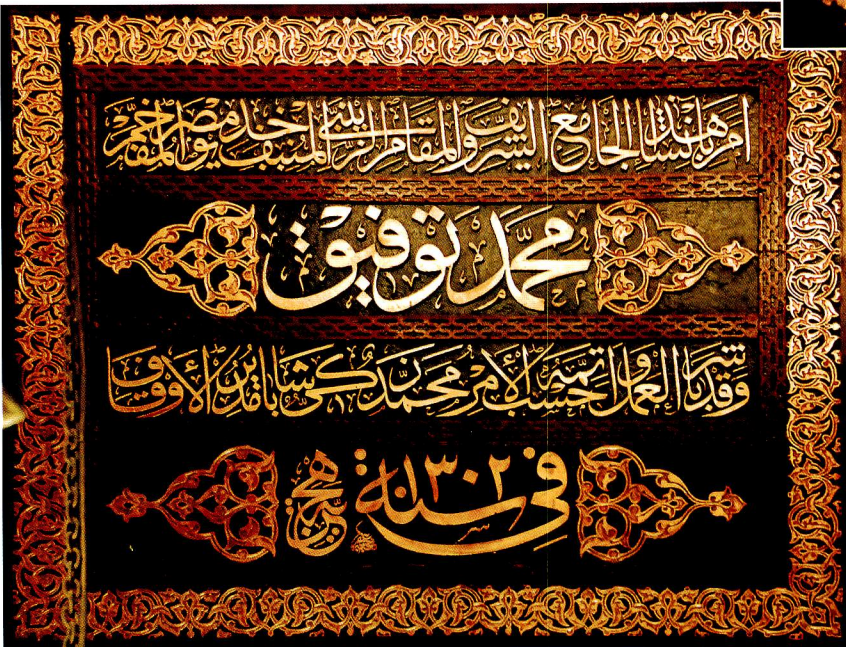 امر بانشاء هذا الجامع الشريف والمقام الزينبي المنيف خديو مصر المفخم
محمد توفيق
وقد باشر العمل واتمه حسب الأمر محمد زكي باشا مدير الأوقاف
في سنة ١٣٠٢ هجرية